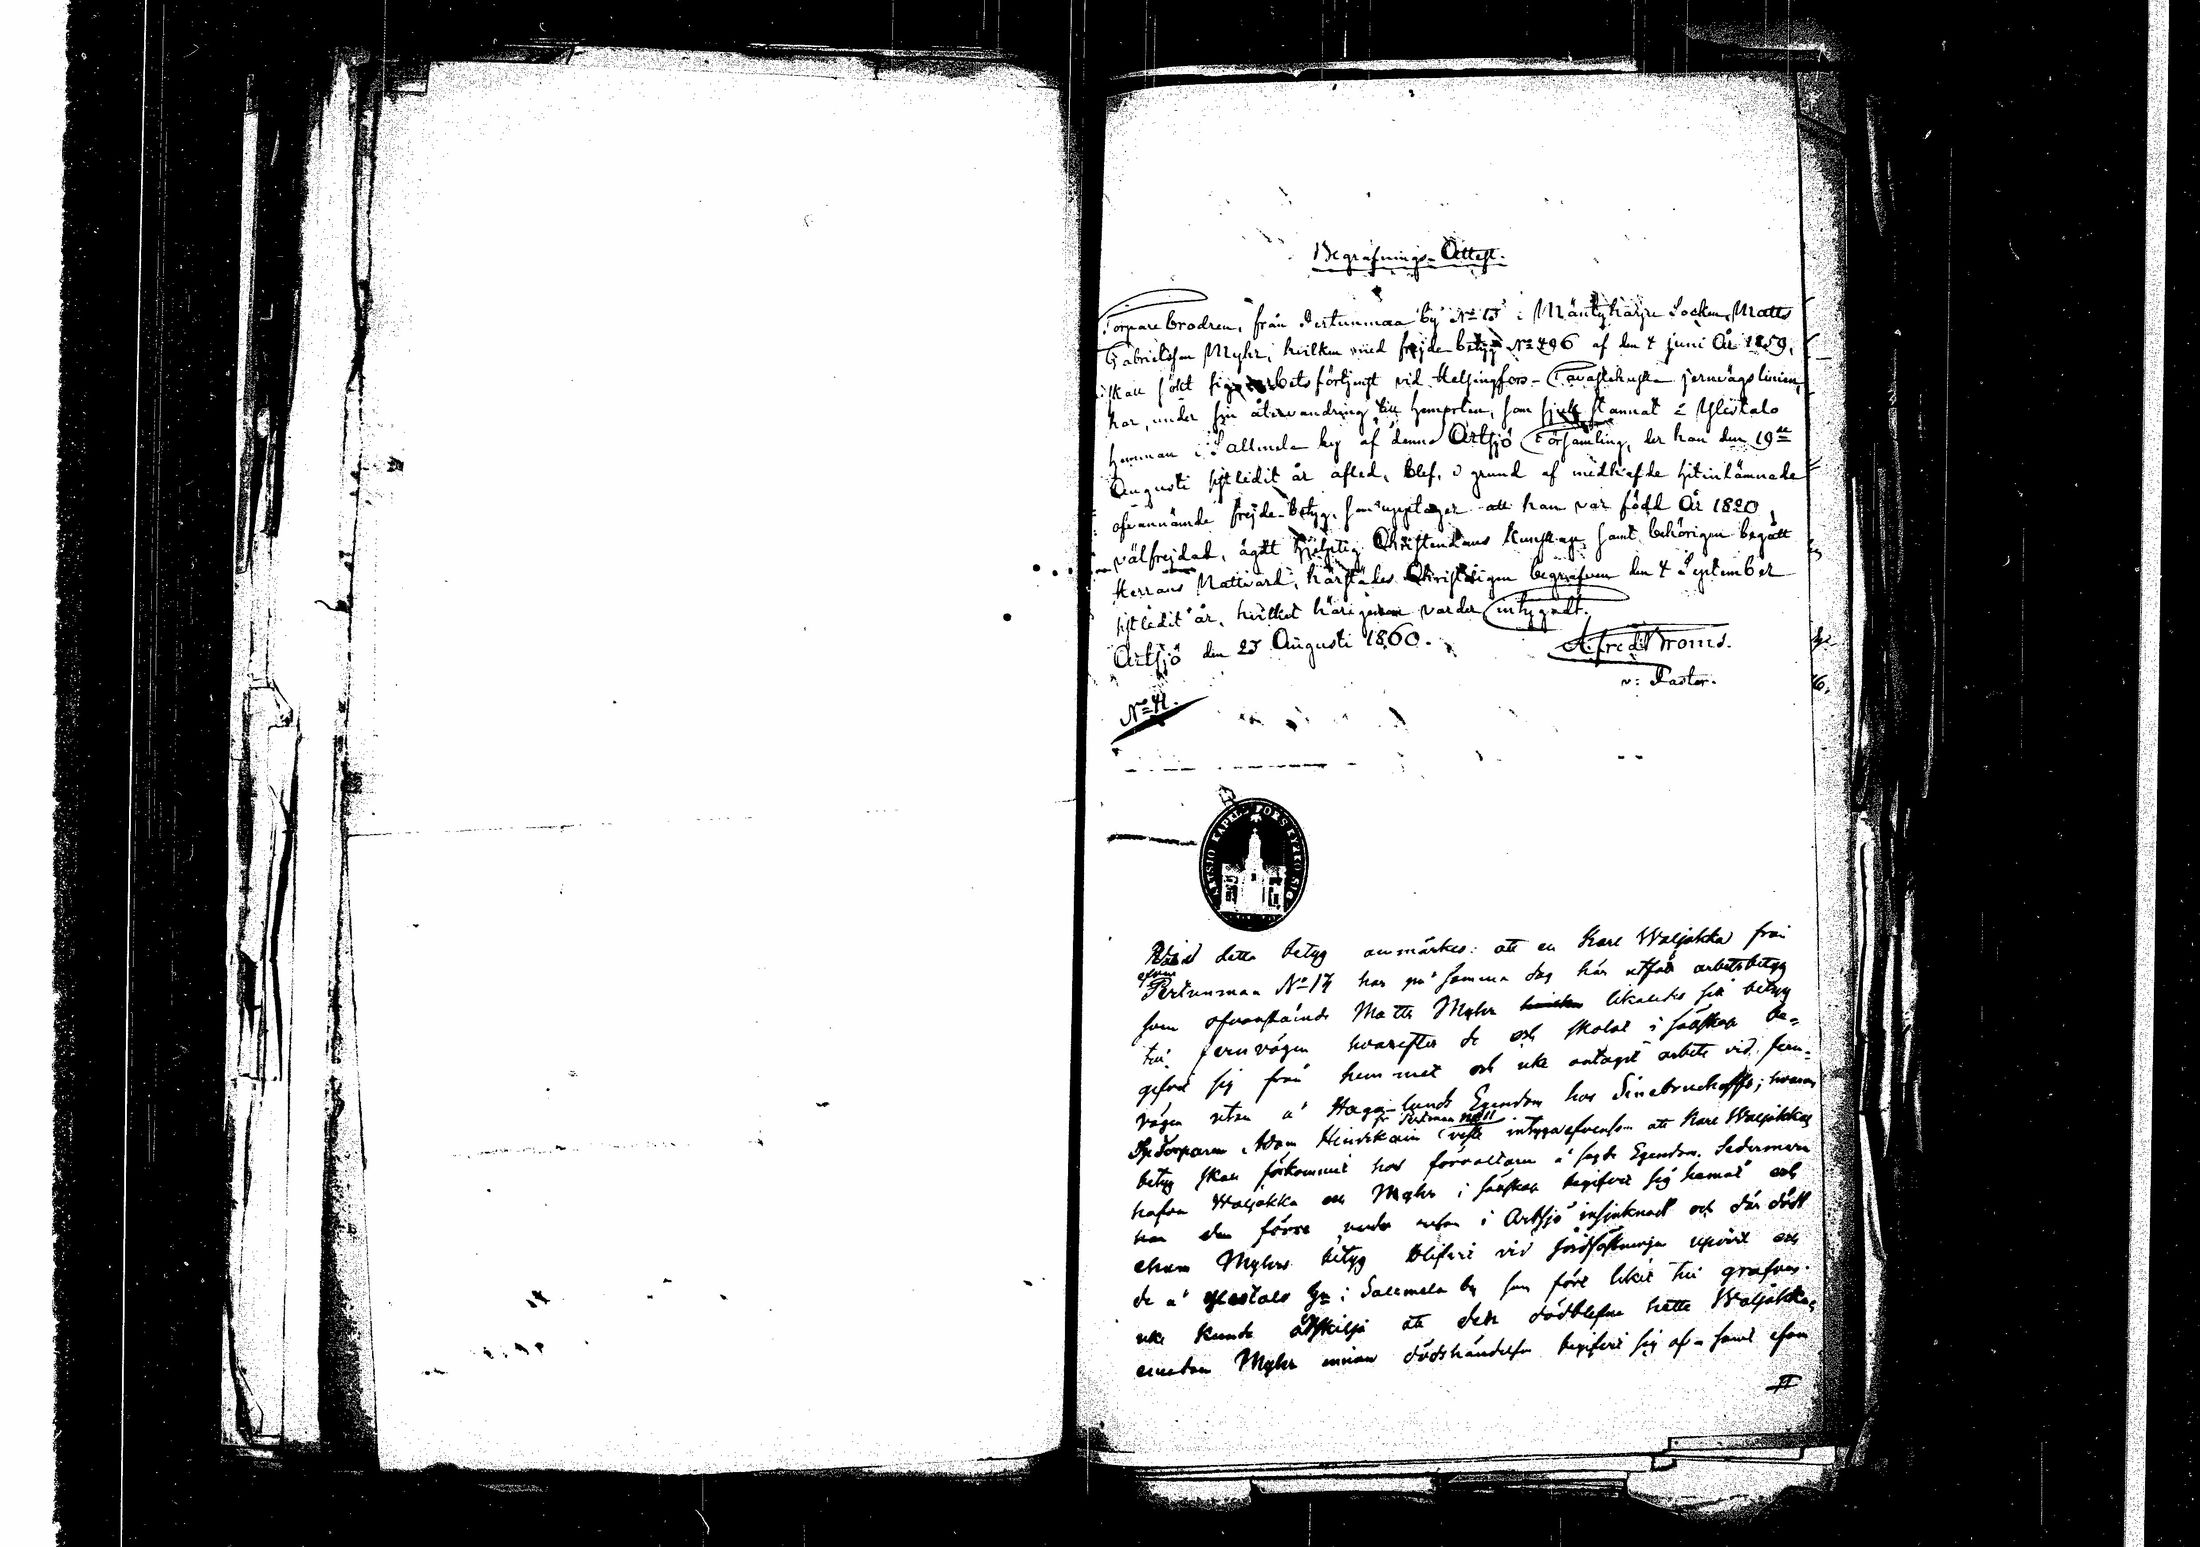 Begrafnings-Attest.
Torpare brodren, från Pertunmaa by No 13 i Mäntyharju Socken, Matts
Gabrielsson Myhr, hvilken med frejdebetyg No 496 af den 4 juni År 1859,
skall sökt sig arbetsförtjenst vid Helsingfors-Tavastehuska jernvägslinien,
har, under sin återvandring till hemorten, som sjuk stannat i Ylöstalo
hemman i Sallmela by af denna Artsjö Församling, der han den 19de
Augusti sistledit år afled, blef, å grund af medhafde hitinlämnade
ofvannämde frejde-betyg, som upptager att han var född År 1820,
välfrejdad, ägdt hjelplig Christendoms kunskap samt behörigen begått
Herrans Nattvard, härstädes Christligen begrafven den 4 September
sistledit år, hvilket härigenom varder intygadt.
Artsjö den 23 Augusti 1860.
Alfred Broms.
v: Pastor.
No 41.
ARTSJÖ KAPELLFORS KYRKO SIG
Vid detta betyg anmärkes: att en Karl Waljakka från
äfven
Pertunmaa No 17 har på samma dag här utfått arbetsbetyg
som ofvanstående Matts Myhr likaledes sitt betyg
till jernvägen hvarefter de och skolat i sällskap be-
gifvit sig från hemmet och icke antagit arbete vid jern-
vägen utan å Haga-lunds Egendom hos Sinebruchoffs; hvarom
fr Pertunmaa No 11
Torparen Adam Hinrikain intyga äfvensom att Karl Waljakkas
betyg skall förkommit hos förvaltaren å sagde Egendom. Sedermera
hafva Waljakka och Myhr i sällskap begifvit sig hemåt och
har den förre under resan i Artsjö insjuknat och där dödt
ehuru Myhrs betyg blifvit vid jordfästningen uppvist och
de å Ylöstalo i Sallmela by som fört liket till grafven
icke kunde åtskilja att den dödblefne hette Waljakka,
emedan Myhr innan dödshändelsen begifvit sig af - samt